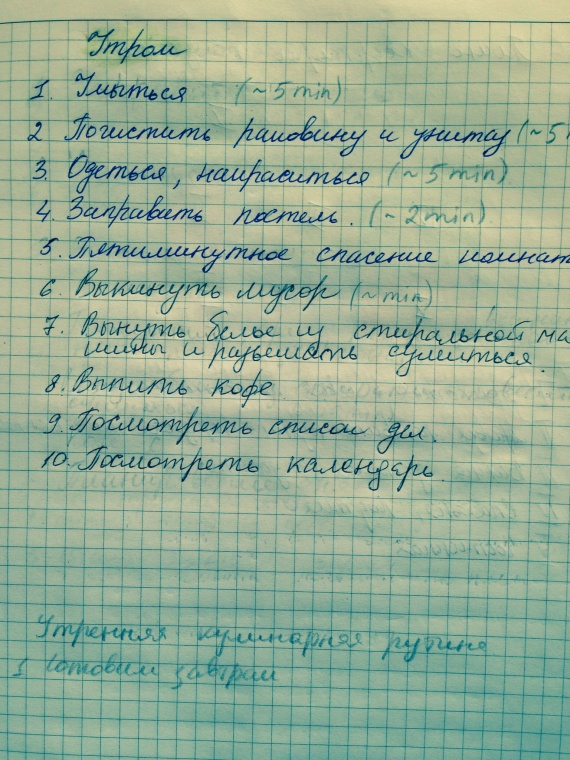 Утром
1. Умыться (~5 min)
2 Почистить раковину и унитаз (~5
3. Одеться, накраситься (~5 min)
4. Заправить постель. (~2min)
5. Пятиминутное спасение комнат
6. Выкинуть мусор (~min)
7. Вынуть белье из стиральной ма
шины и развешать сушиться.
8. Выпить кофе
9. Посмотреть список дел.
10. Посмотреть календарь.
Утренняя кулинарная рутина
1 Готовим завтрак